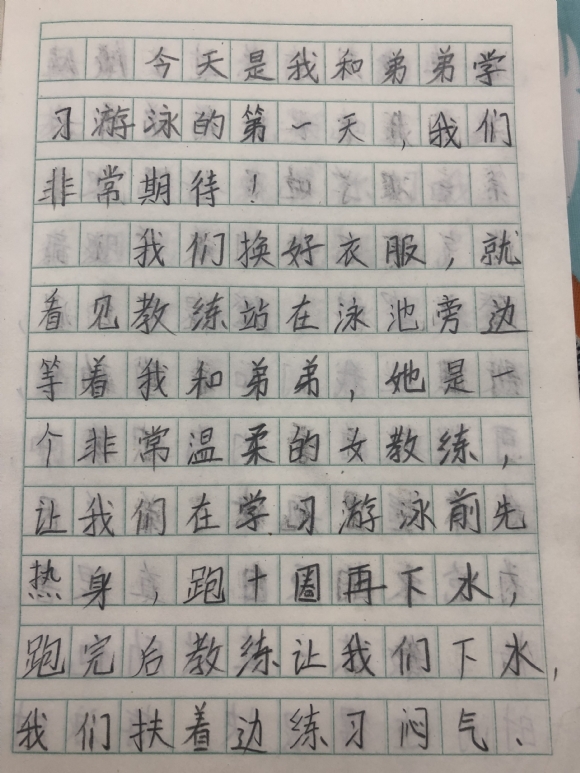 今天是我和弟弟学
习游泳的第一天,我们
非常期待!
我们换好衣服,就
看见教练站在泳池旁边
等着我和弟弟,她是一
个非常温柔的女教练,
让我们在学习游泳前先
热身,跑十圈再下水,
跑完后教练让我们下水,
我们扶着边练习闷气、